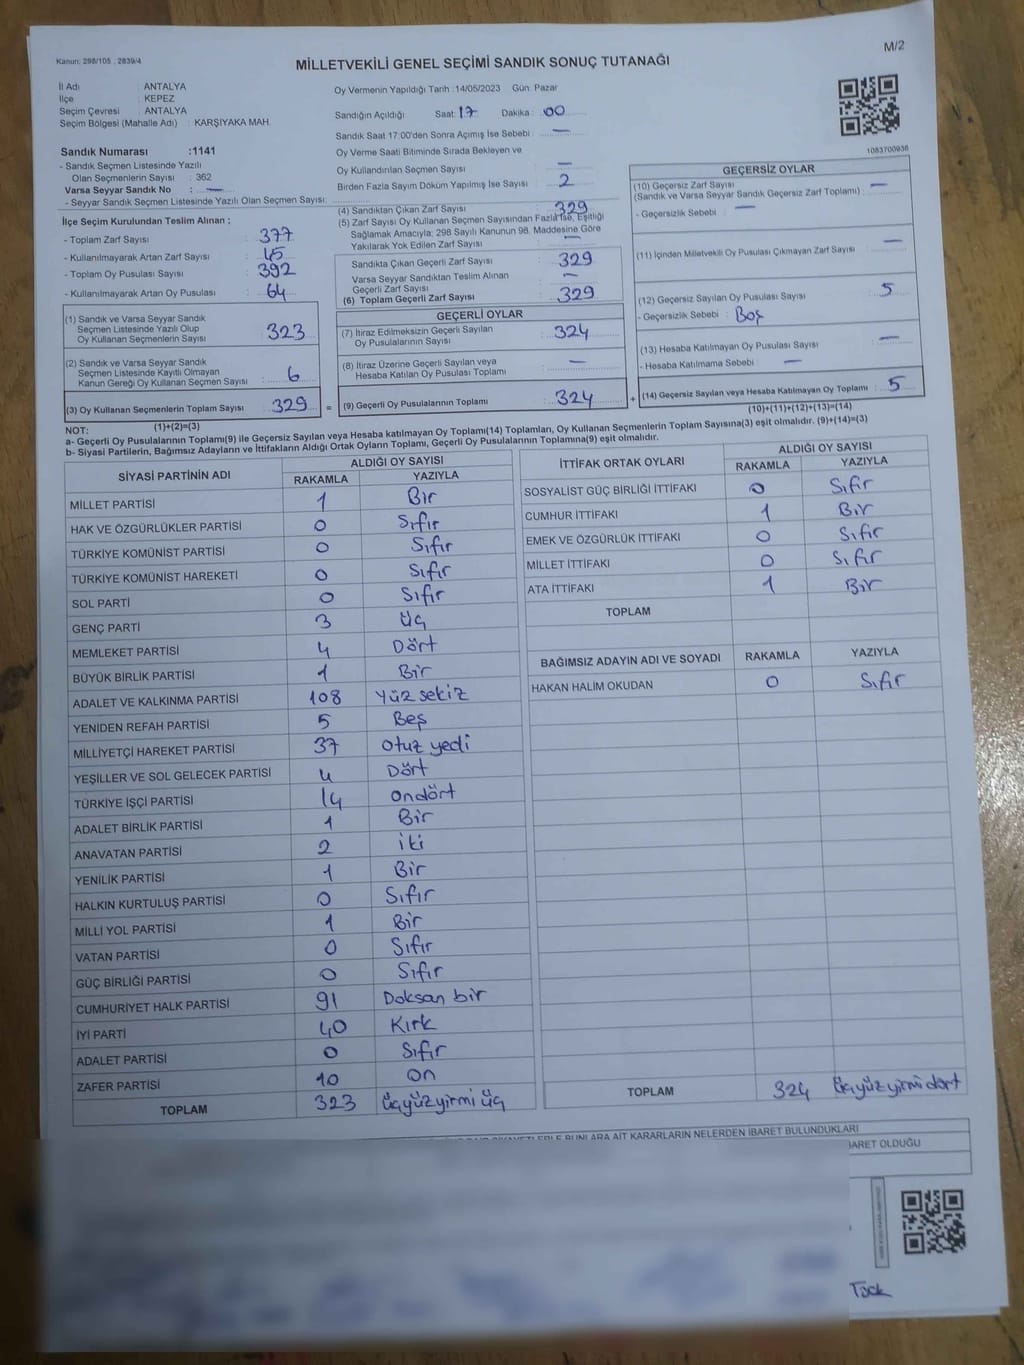 Kanun: 298/105 , 2839/4
M/2
MİLLETVEKİLİ GENEL SEÇİMİ SANDIK SONUÇ TUTANAĞI
İl Adı : ANTALYA
İlçe : KEPEZ
Seçim Çevresi : ANTALYA
Seçim Bölgesi (Mahalle Adı) : KARŞIYAKA MAH.
Oy Vermenin Yapıldığı Tarih :14/05/2023 Gün: Pazar
Sandığın Açıldığı Saat: 17 Dakika : 00
Sandık Saat 17:00'den Sonra Açımış İse Sebebi : —
Oy Verme Saati Bitiminde Sırada Bekleyen ve
Oy Kullandırılan Seçmen Sayısı —
Birden Fazla Sayım Döküm Yapılmış İse Sayısı 2
1083700936
Sandık Numarası :1141
- Sandık Seçmen Listesinde Yazılı
Olan Seçmenlerin Sayısı : 362
Varsa Seyyar Sandık No : —
- Seyyar Sandık Seçmen Listesinde Yazılı Olan Seçmen Sayısı:
İlçe Seçim Kurulundan Teslim Alınan :
- Toplam Zarf Sayısı : 377
- Kullanılmayarak Artan Zarf Sayısı : 45
- Toplam Oy Pusulası Sayısı : 392
- Kullanılmayarak Artan Oy Pusulası : 64
(1) Sandık ve Varsa Seyyar Sandık
Seçmen Listesinde Yazılı Olup
Oy Kullanan Seçmenlerin Sayısı : 323
(2) Sandık ve Varsa Seyyar Sandık
Seçmen Listesinde Kayıtlı Olmayan
Kanun Gereği Oy Kullanan Seçmen Sayısı : 6
(3) Oy Kullanan Seçmenlerin Toplam Sayısı 329 =
(1)+(2)=(3)
(4) Sandıktan Çıkan Zarf Sayısı : 329
(5) Zarf Sayısı Oy Kullanan Seçmen Sayısından Fazla İse, Eşitliği
Sağlamak Amacıyla; 298 Sayılı Kanunun 98. Maddesine Göre
Yakılarak Yok Edilen Zarf Sayısı : —
Sandıkta Çıkan Geçerli Zarf Sayısı : 329
Varsa Seyyar Sandıktan Teslim Alınan
Geçerli Zarf Sayısı : —
(6) Toplam Geçerli Zarf Sayısı : 329
GEÇERLİ OYLAR
(7) İtiraz Edilmeksizin Geçerli Sayılan
Oy Pusulalarının Sayısı : 324
(8) İtiraz Üzerine Geçerli Sayılan veya
Hesaba Katılan Oy Pusulası Toplamı : —
(9) Geçerli Oy Pusulalarının Toplamı : 324 +
GEÇERSİZ OYLAR
(10) Geçersiz Zarf Sayısı —
(Sandık ve Varsa Seyyar Sandık Geçersiz Zarf Toplamı) :
- Geçersizlik Sebebi : —
(11) İçinden Milletvekili Oy Pusulası Çıkmayan Zarf Sayısı : —
(12) Geçersiz Sayılan Oy Pusulası Sayısı : 5
- Geçersizlik Sebebi : Boş
(13) Hesaba Katılmayan Oy Pusulası Sayısı : —
- Hesaba Katılmama Sebebi : —
(14) Geçersiz Sayılan veya Hesaba Katılmayan Oy Toplamı : 5
(10)+(11)+(12)+(13)=(14)
NOT:
a- Geçerli Oy Pusulalarının Toplamı(9) ile Geçersiz Sayılan veya Hesaba katılmayan Oy Toplamı(14) Toplamları, Oy Kullanan Seçmenlerin Toplam Sayısına(3) eşit olmalıdır. (9)+(14)=(3)
b- Siyasi Partilerin, Bağımsız Adayların ve İttifakların Aldığı Ortak Oyların Toplamı, Geçerli Oy Pusulalarının Toplamına(9) eşit olmalıdır.
SİYASİ PARTİNİN ADI ALDIĞI OY SAYISI
RAKAMLA YAZIYLA
MİLLET PARTİSİ 1 Bir
HAK VE ÖZGÜRLÜKLER PARTİSİ 0 Sıfır
TÜRKİYE KOMÜNİST PARTİSİ 0 Sıfır
TÜRKİYE KOMÜNİST HAREKETİ 0 Sıfır
SOL PARTİ 0 Sıfır
GENÇ PARTİ 3 Üç
MEMLEKET PARTİSİ 4 Dört
BÜYÜK BİRLİK PARTİSİ 1 Bir
ADALET VE KALKINMA PARTİSİ 108 Yüz sekiz
YENİDEN REFAH PARTİSİ 5 Beş
MİLLİYETÇİ HAREKET PARTİSİ 37 Otuz yedi
YEŞİLLER VE SOL GELECEK PARTİSİ 4 Dört
TÜRKİYE İŞÇİ PARTİSİ 14 Ondört
ADALET BİRLİK PARTİSİ 1 Bir
ANAVATAN PARTİSİ 2 İki
YENİLİK PARTİSİ 1 Bir
HALKIN KURTULUŞ PARTİSİ 0 Sıfır
MİLLİ YOL PARTİSİ 1 Bir
VATAN PARTİSİ 0 Sıfır
GÜÇ BİRLİĞİ PARTİSİ 0 Sıfır
CUMHURİYET HALK PARTİSİ 91 Doksan bir
İYİ PARTİ 40 Kırk
ADALET PARTİSİ 0 Sıfır
ZAFER PARTİSİ 10 On
TOPLAM 323 Üçyüzyirmi üç
İTTİFAK ORTAK OYLARI ALDIĞI OY SAYISI
RAKAMLA YAZIYLA
SOSYALİST GÜÇ BİRLİĞİ İTTİFAKI 0 Sıfır
CUMHUR İTTİFAKI 1 Bir
EMEK VE ÖZGÜRLÜK İTTİFAKI 0 Sıfır
MİLLET İTTİFAKI 0 Sıfır
ATA İTTİFAKI 1 Bir
TOPLAM
BAĞIMSIZ ADAYIN ADI VE SOYADI RAKAMLA YAZIYLA
HAKAN HALİM OKUDAN 0 Sıfır
TOPLAM 324 Üçyüzyirmi dört
BUNLARA AİT KARARLARIN NELERDEN İBARET BULUNDUKLARI
İBARET OLDUĞU